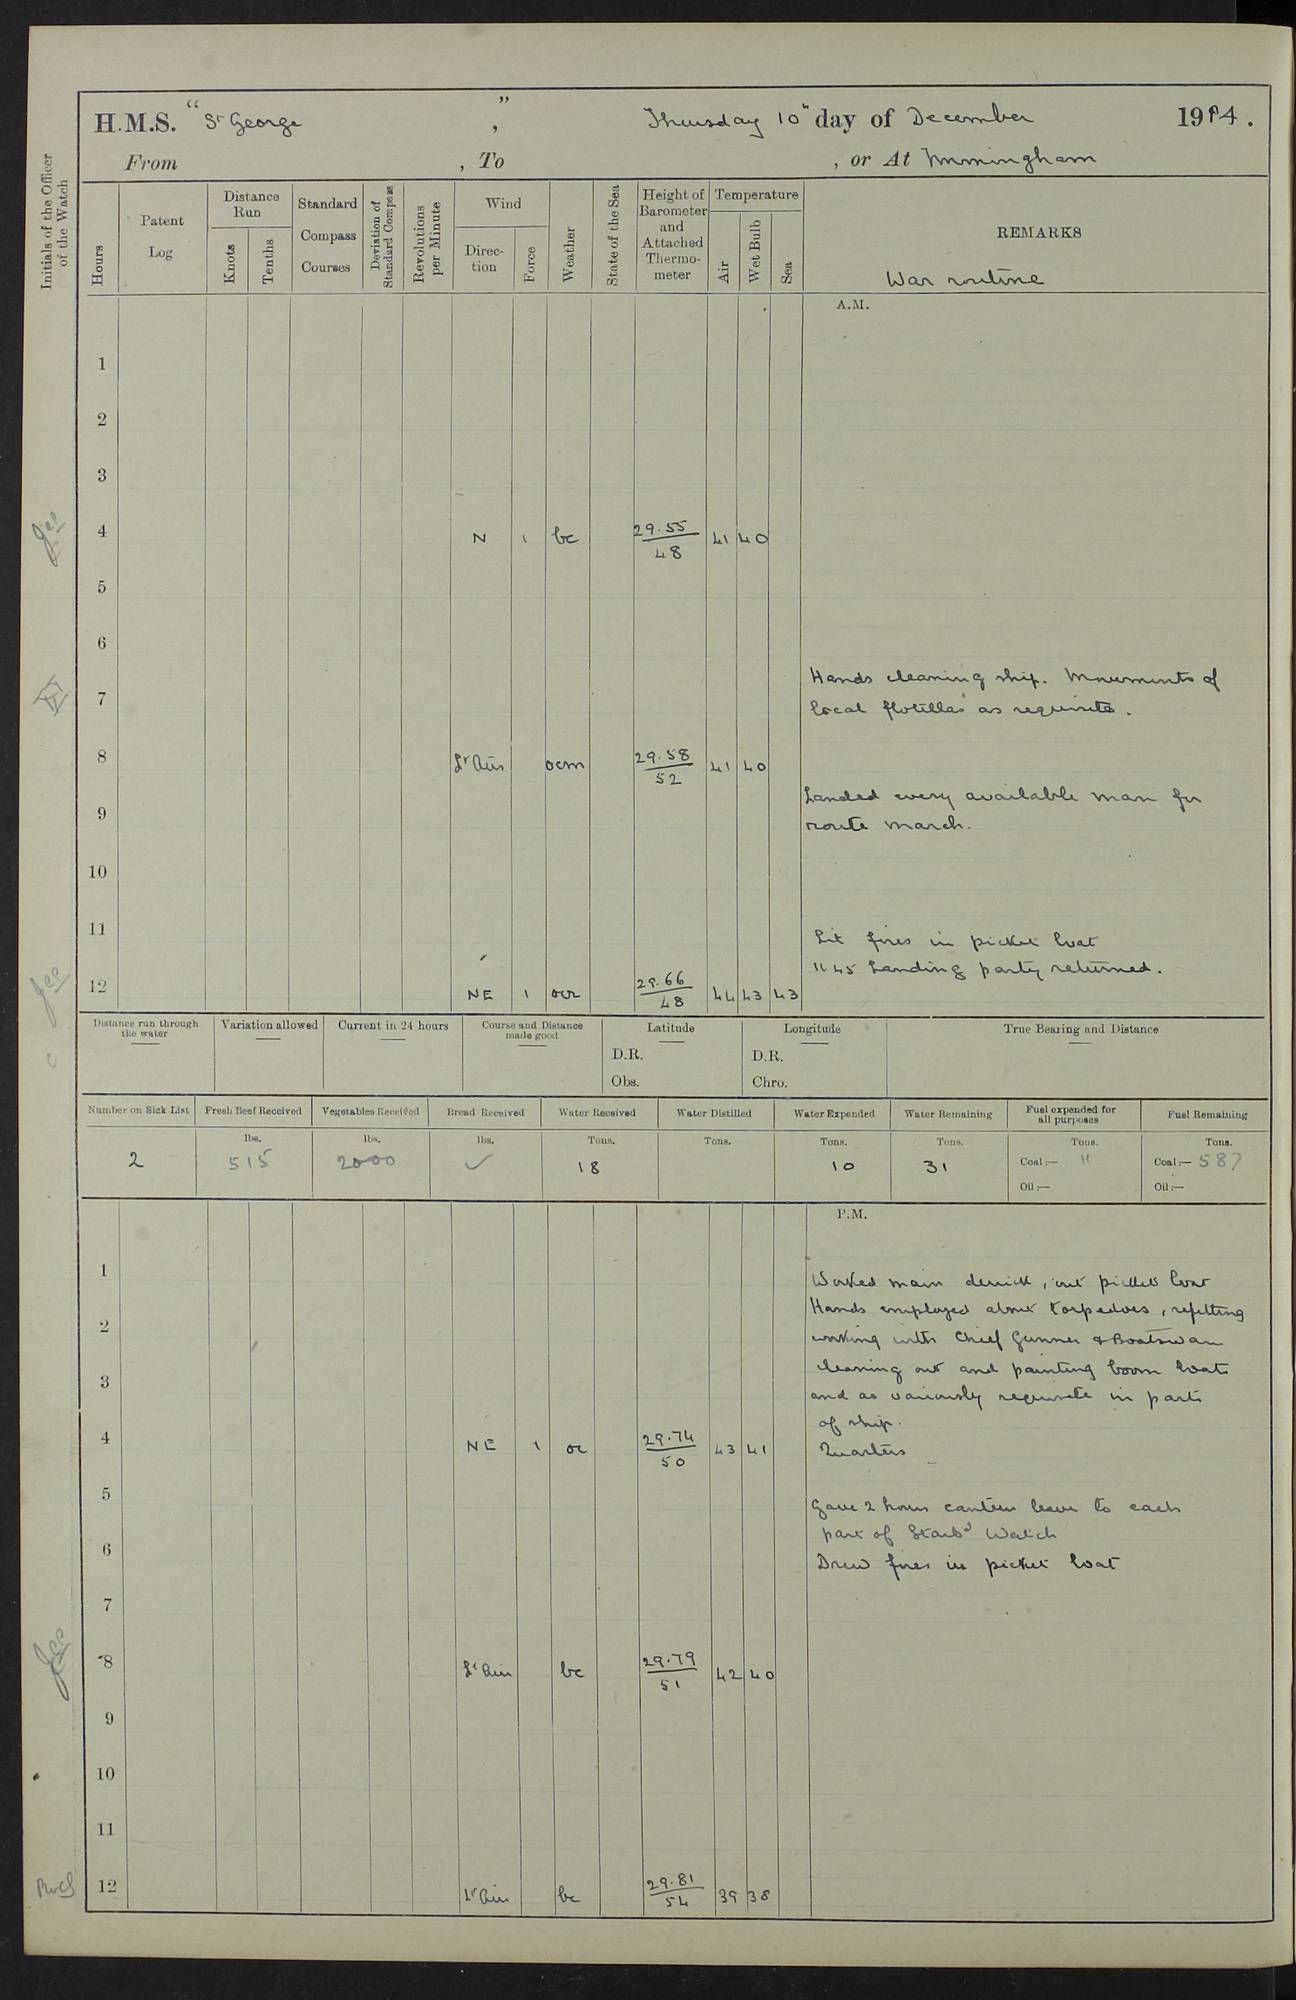 H.M.S. " St George " , Thursday 10th day of December 1914.
From , To , or At Immingham
Initials of the Officer of the Watch
Hours
Patent Log
Distance Run
Knots
Tenths
Standard Compass Courses
Deviation of Standard Compass
Revolutions per Minute
Wind
Direc-tion
Force
Weather
State of the Sea
Height of Barometer and Attached Thermo-meter
Temperature
Air
Wet Bulb
Sea
REMARKS
War routine
A.M.
1
2
3
4 N 1 bc 29.55 / 48 41 40
5
6
Hands cleaning ship. Movements of
7 local flotillas as requisite.
8 Lt Airs ocm 29.58 / 52 41 40
Landed every available man for
9 route march.
10
11 Lit fires in picket boat
11 45 Landing party returned.
12 NE 1 ocr 29.66 / 48 44 43 43
Distance run through the water
Variation allowed
Current in 24 hours
Course and Distance made good
Latitude
D.R.
Obs.
Longitude
D.R.
Chro.
True Bearing and Distance
Number on Sick List
Fresh Beef Received
Vegetables Received
Bread Received
Water Received
Water Distilled
Water Expended
Water Remaining
Fuel expended for all purposes
Fuel Remaining
lbs. lbs. lbs. Tons. Tons. Tons. Tons. Tons. Tons.
2 515 2000 ✓ 18 10 31 Coal:— 11 Coal:— 587
Oil:— Oil:—
P.M.
1 Worked main derrick, out picket boat
Hands employed about torpedoes, refitting
2 working with Chief Gunner & Boatswain
cleaning out and painting boom boats
3 and as variously requisite in parts
of ship.
4 NE 1 oc 29.74 / 50 43 41 Quarters
5 Gave 2 hours canteen leave to each
part of Starbd Watch
6 Drew fires in picket boat
7
8 Lt Airs bc 29.79 / 51 42 40
9
10
11
12 Lt Airs bc 29.81 / 54 39 38